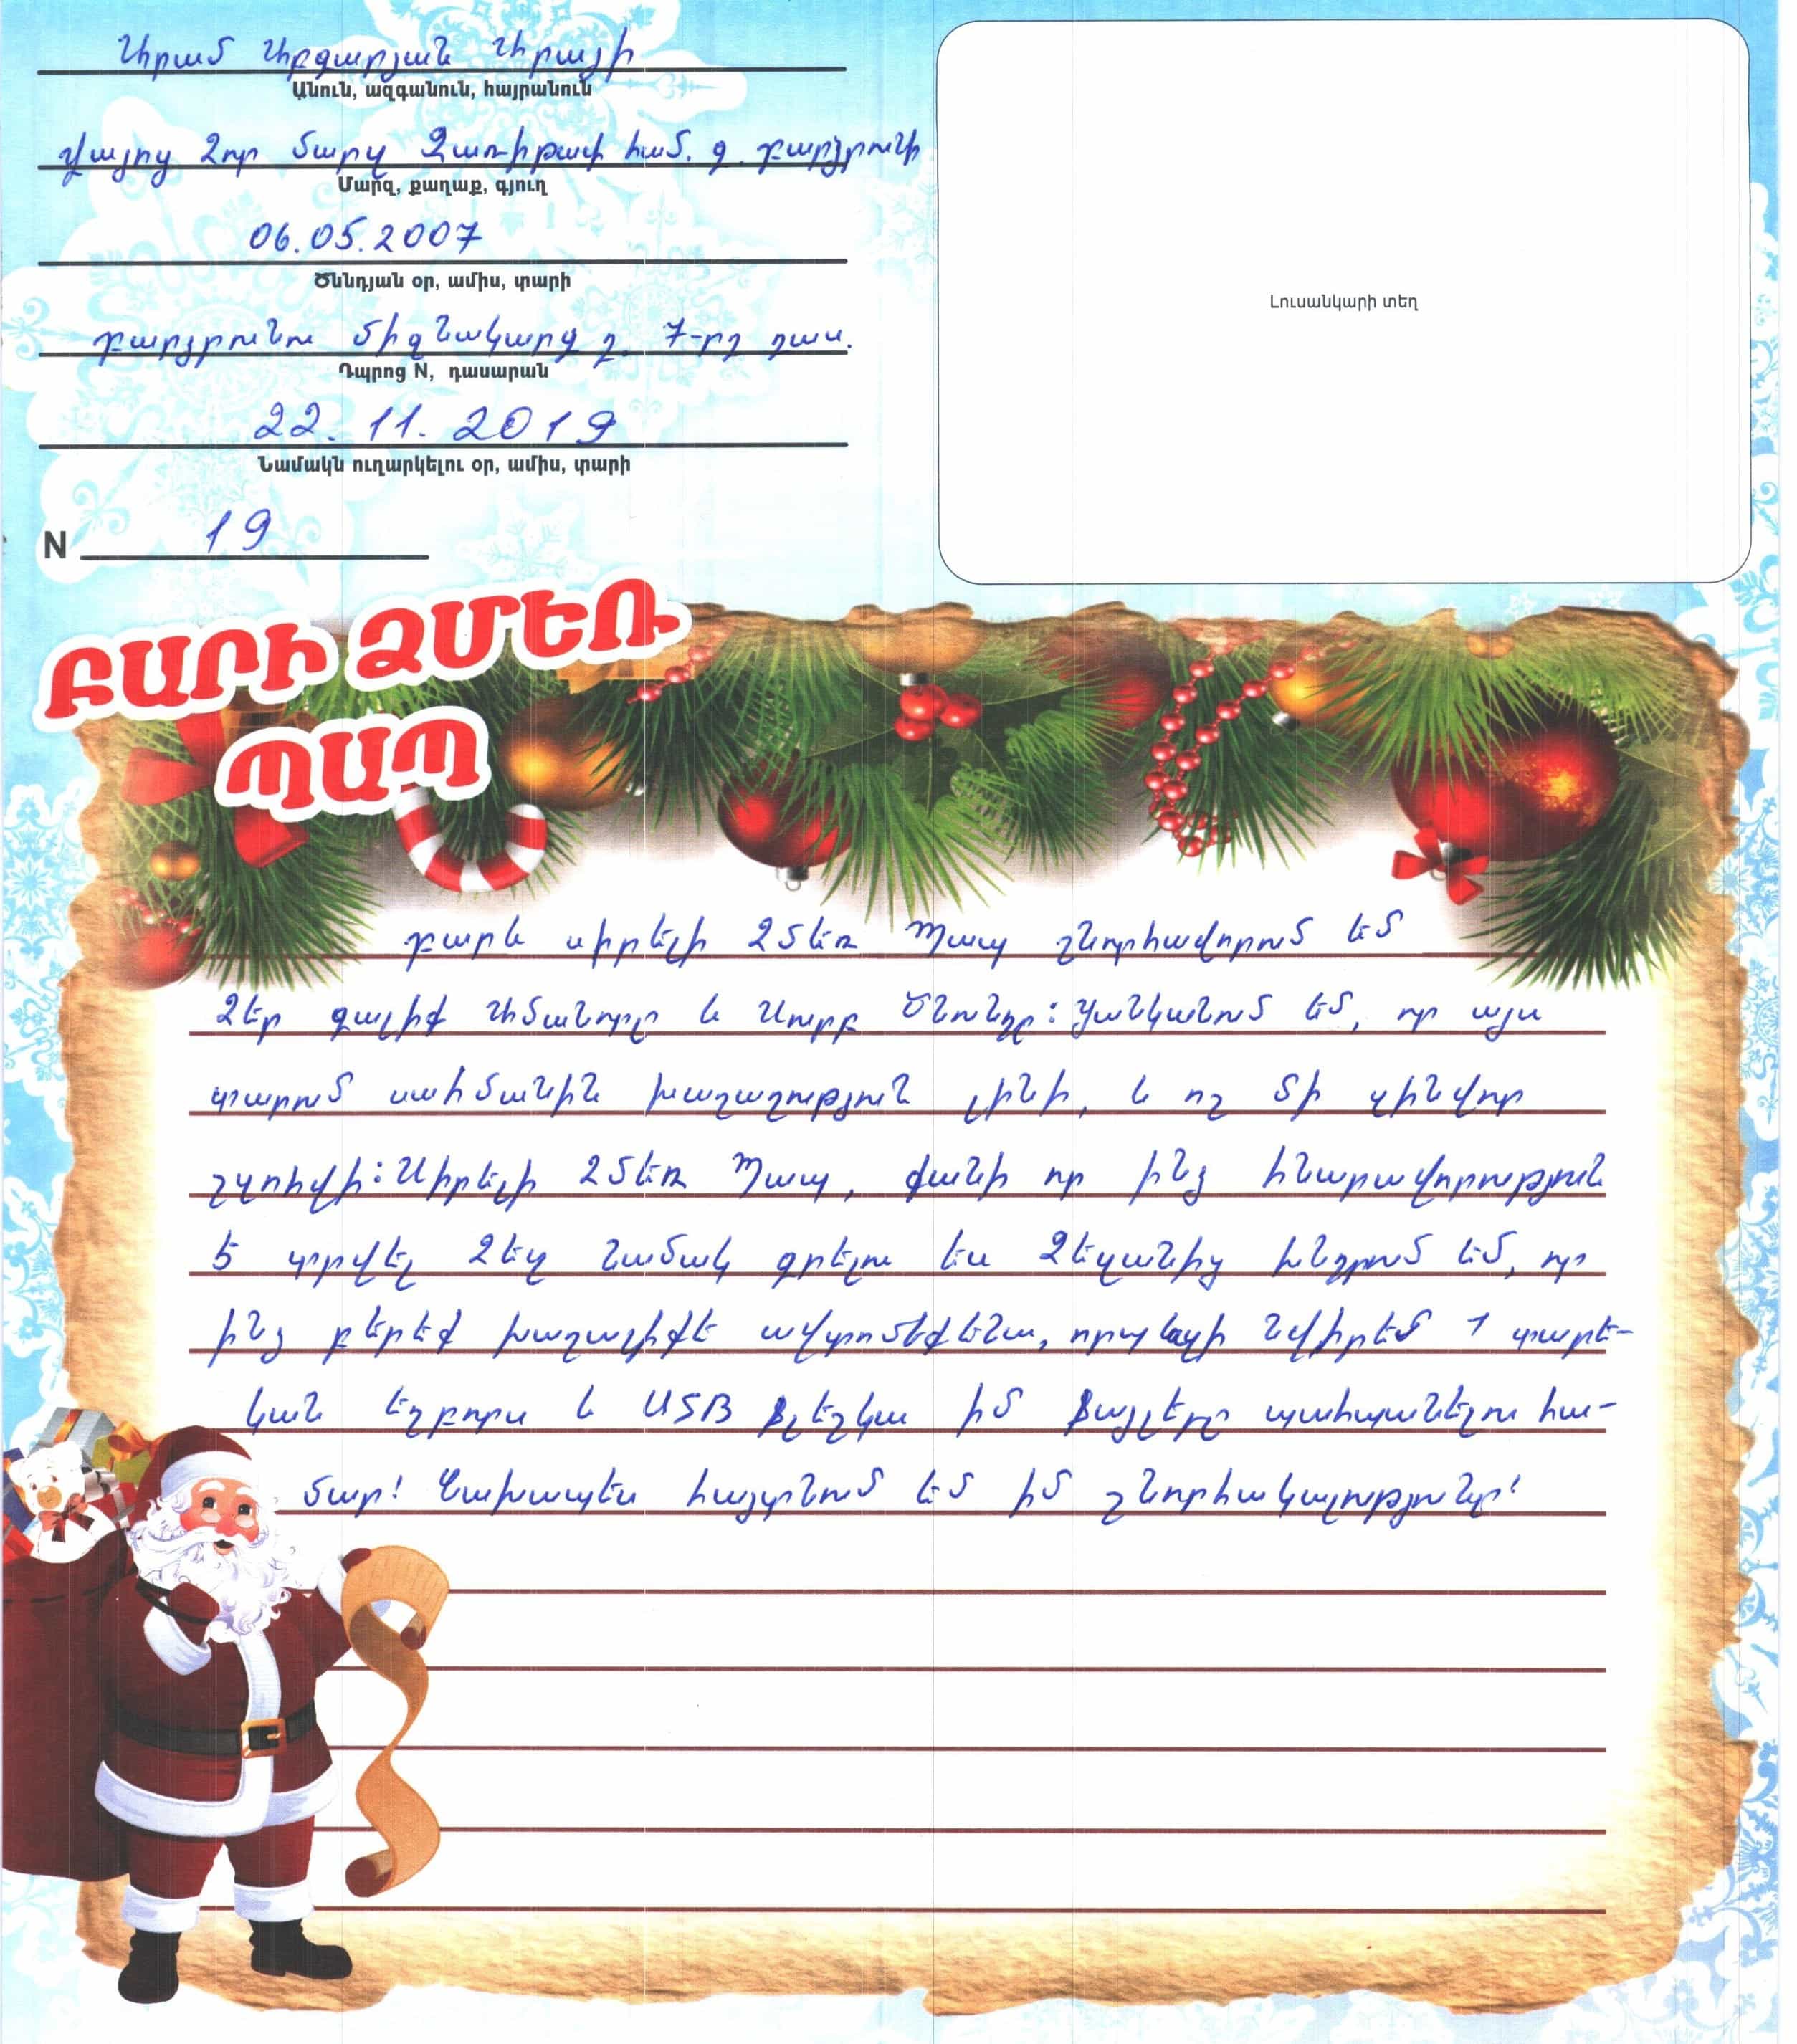 Արամ Աբգարյան Արայի
Անուն, ազգանուն, հայրանուն
Վայոց Ձոր մարզ Զառիթափ համ. գ. Բարձրունի
Մարզ, քաղաք, գյուղ
06.05.2007
Ծննդյան օր, ամիս, տարի
Բարձրունու միջնակարգ դ. 7-րդ դաս.
Դպրոց N, դասարան
22.11.2019
Նամակն ուղարկելու օր, ամիս, տարի
N 19
Լուսանկարի տեղ
ԲԱՐԻ ՁՄԵՌ
ՊԱՊ
Բարև սիրելի Ձմեռ Պապ շնորհավորում եմ
Ձեր գալիք Ամանորը և Սուրբ Ծնունդը: Ցանկանում եմ, որ այս
տարում սահմանին խաղաղություն լինի, և ոչ մի զինվոր
չզոհվի: Սիրելի Ձմեռ Պապ, քանի որ ինձ հնարավորություն
է տրվել Ձեզ նամակ գրելու ես Ձեզանից խնդրում եմ, որ
ինձ բերեք խաղալիքե ավտոմեքենա, որպեսզի նվիրեմ 1 տարե-
կան եղբորս և USB ֆլեշկա իմ ֆայլերը պահպանելու հա-
մար! Նախապես հայտնում եմ իմ շնորհակալությունը!